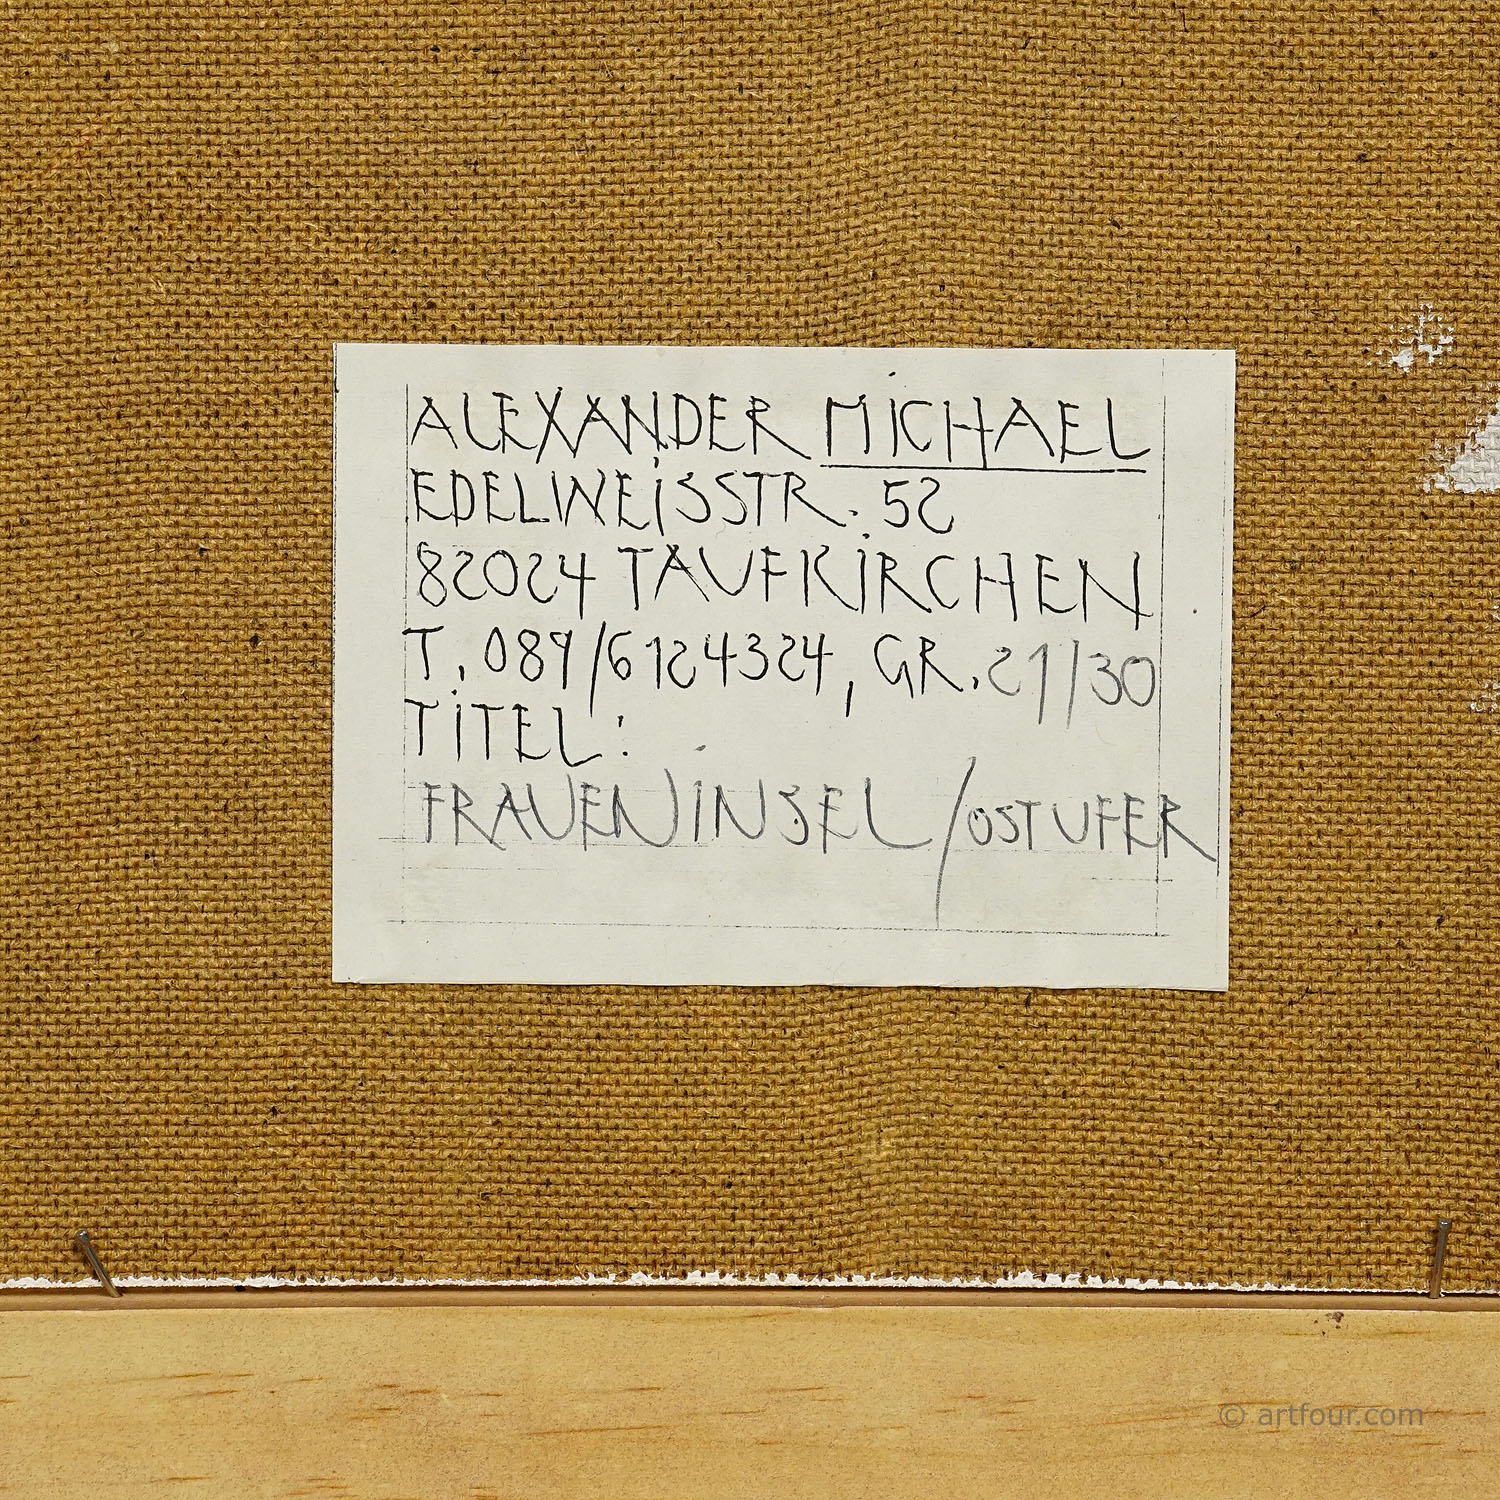 ALEXANDER MICHAEL
EDELWEISSTR. 52
82024 TAUFKIRCHEN
T. 089/6124324, GR. 21/30
TITEL:
FRAUENINSEL/OSTUFER
© artfour.com